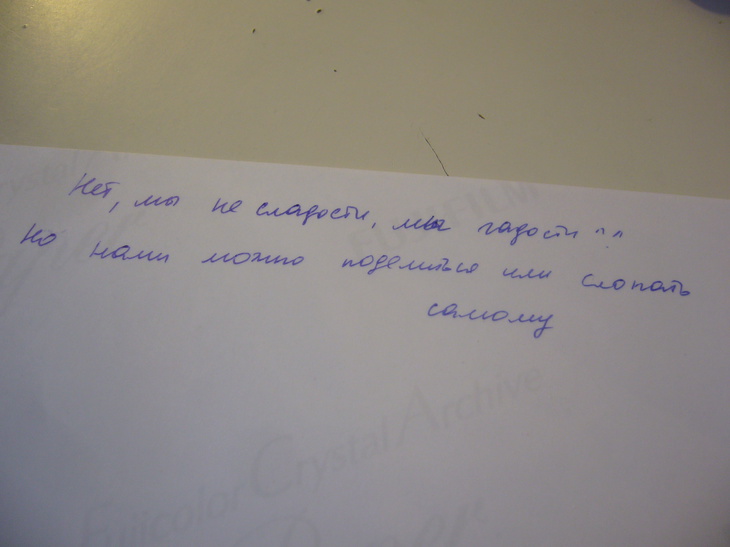 Нет, мы не сладости, мы гадости ^^
Но нами можно поделиться или слопать
самому
FUJIFILM
Fujicolor Crystal Archive